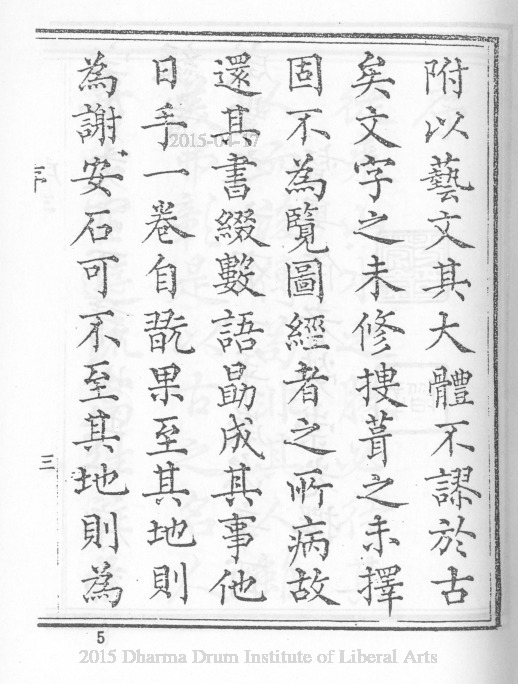 附以藝文其大體不謬於古
矣文字之未修摉葺之未擇
固不為覽圖經者之所病故
還其書綴數語勗成其事他
日手一卷自翫果至其地則
為謝安石可不至其地則為
序
三
5
2015-04-27
2015 Dharma Drum Institute of Liberal Arts